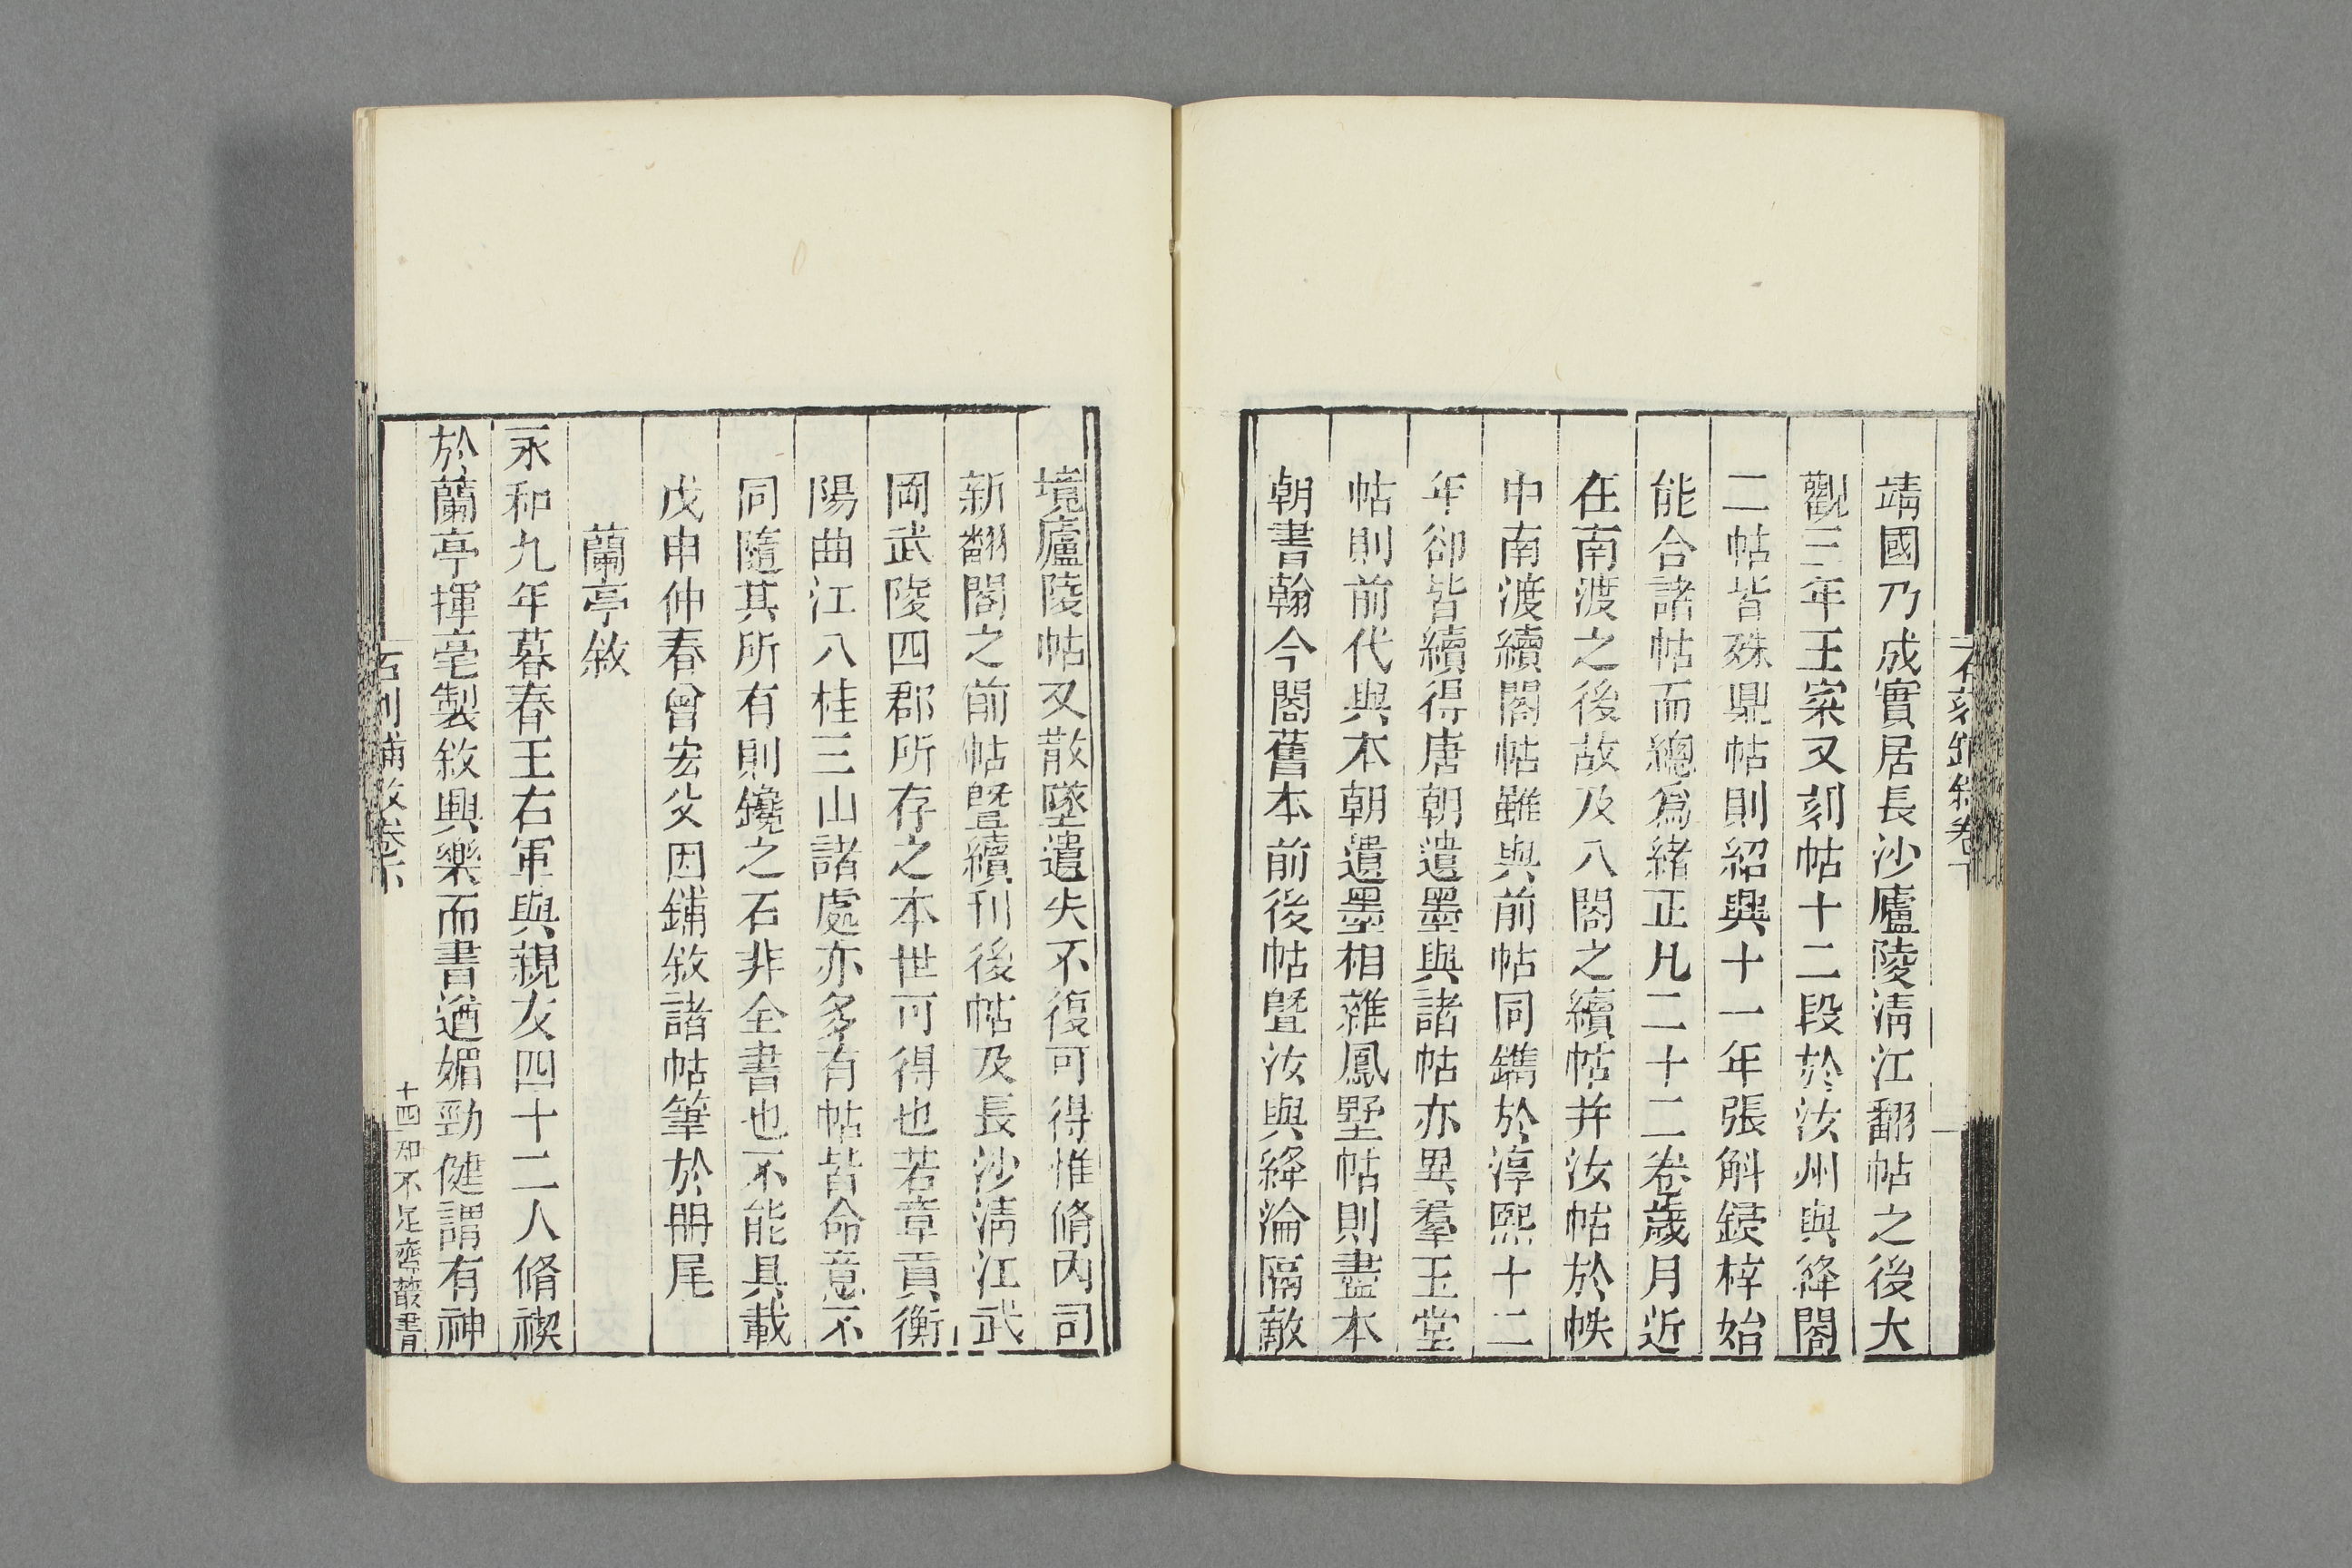 靖國乃成實居長沙廬陵淸江翻帖之後大
觀三年王寀又刻帖十二段於汝州與絳閣
二帖皆殊鼎帖則紹興十一年張斛鋟梓始
能合諸帖而總爲緒正凡二十二卷歲月近
在南渡之後故及八閣之續帖并汝帖於帙
中南渡續閣帖雖與前帖同鐫於淳熙十二
年卻皆續得唐朝遺墨與諸帖亦異羣玉堂
帖則前代與本朝遺墨相雜鳳墅帖則盡本
朝書翰今閣舊本前後帖暨汝與絳淪隔敵
境廬陵帖又散墜遺失不復可得惟脩內司
新翻閣之前帖暨續刊後帖及長沙淸江武
岡武陵四郡所存之本世可得也若章貢衡
陽曲江八桂三山諸處亦多有帖皆命意不
同隨其所有則鑱之石非全書也不能具載
戊申仲春曾宏父因鋪敘諸帖筆於册尾
蘭亭敘
永和九年暮春王右軍與親友四十二人脩禊
於蘭亭揮毫製敘興樂而書遒媚勁健謂有神
石刻鋪敘卷下
十四 知不足齋叢書